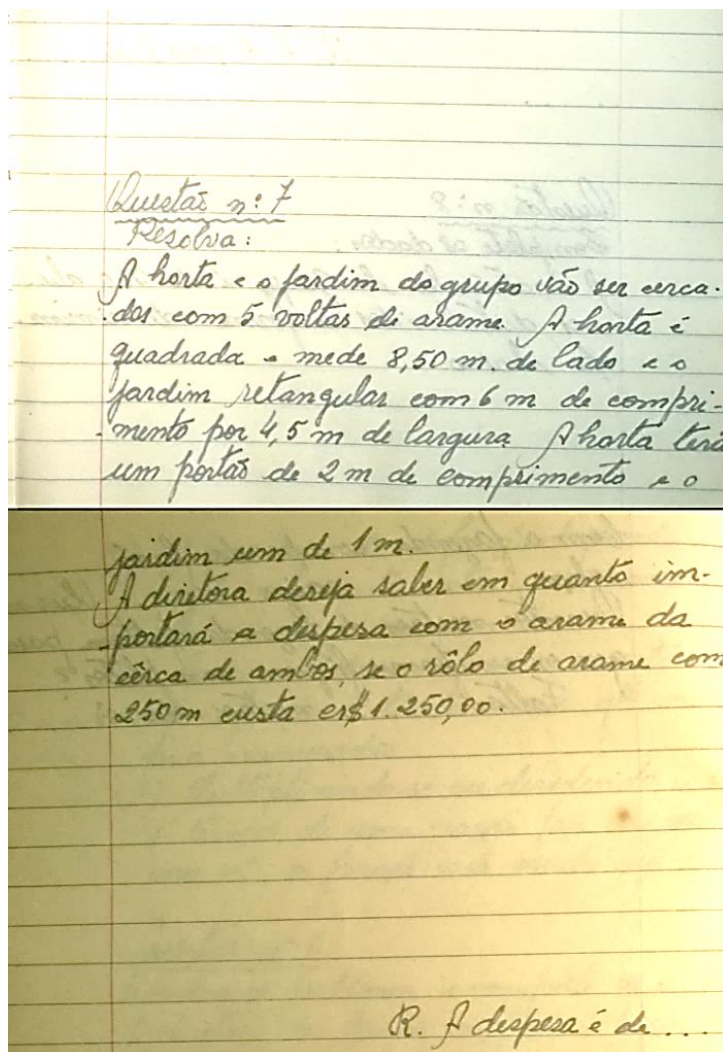 Questão nº 7
Resolva:
A horta e o jardim do grupo vão ser cerca-
dos com 5 voltas de arame. A horta é
quadrada e mede 8,50 m. de lado e o
jardim retangular com 6 m de compri-
mento por 4,5 m de largura. A horta terá
um portão de 2 m de comprimento e o
jardim um de 1 m.
A diretora deseja saber em quanto im-
portará a despesa com o arame da
cêrca de ambos, se o rôlo de arame com
250 m custa cr$ 1.250,00.
R. A despesa é de ....